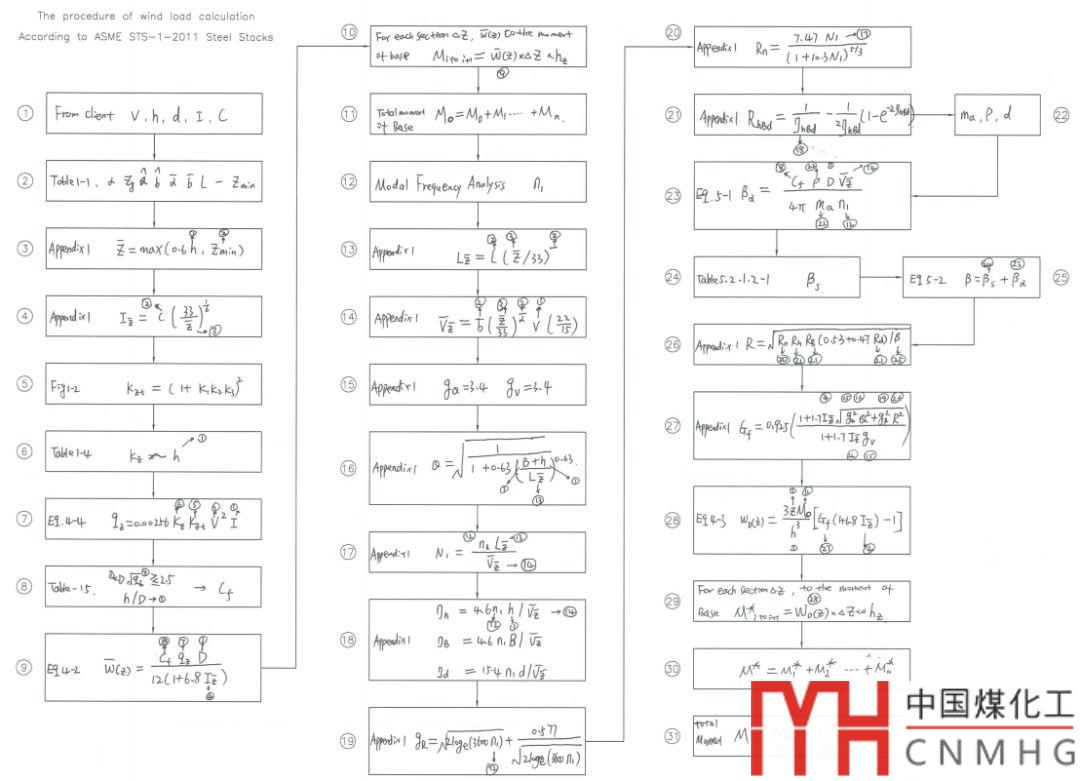 The procedure of wind load calculation
According to ASME STS-1-2011 Steel Stacks
① From client V, h, d, I, C
② Table 1-1. α Zg â b̂ ᾱ b̄ L - Zmin
③ Appendix 1 Z̄ = max (0.6 h, Zmin)
④ Appendix 1 Iz̄ = C (33/Z̄)^(1/6)
⑤ Fig 1-2 Kzt = (1 + K1K2K3)²
⑥ Table 1-4 Kz ~ h
⑦ Eq. 4-4 qz = 0.00256 Kz Kzt V² I
⑧ Table-15. D√qz ≥ 2.5 → Cf
h/D → ①
⑨ Eq 4-2 w̄(z) = Cf qz D / 12(1+6.8 Iz̄)
⑩ For each section ΔZ, w̄(z) to the moment
of base M1 to i+1 = w̄(z) × ΔZ × hz
⑪ Total moment of Base M0 = M0 + M1 ····· + Mn.
⑫ Modal Frequency Analysis n1
⑬ Appendix 1 Lz̄ = l (Z̄/33)
⑭ Appendix 1 V̄z̄ = b̄ (Z̄/33)^ᾱ V (22/15)
⑮ Appendix 1 gQ = 3.4 gv = 3.4
⑯ Appendix 1 Q = √(1 / (1 + 0.63 ((B+h)/Lz̄)^0.63))
⑰ Appendix 1 N1 = n1 Lz̄ / V̄z̄ → ⑭
⑱ Appendix 1 ηh = 4.6 n1 h / V̄z̄ → ⑭
ηB = 4.6 n1 B / V̄z̄
ηd = 15.4 n1 d / V̄z̄
⑲ Appendix 1 gR = √(2loge(3600 n1)) + 0.577 / √(2loge(3600 n1))
⑳ Appendix 1 Rn = 7.47 N1 / (1+10.3N1)^(5/3)
㉑ Appendix 1 RhBd = 1/ηhBd - 1/2ηhBd (1-e^(-2ηhBd))
ma, ρ, d ㉒
㉓ Eq. 5-1 βa = Cf ρ D V̄z̄ / 4π ma n1
㉔ Table 5.2.1.2-1 βs
Eq 5-2 β = βs + βa ㉕
㉖ Appendix 1 R = √(Rn Rh RB (0.53+0.47 Rd)/β)
㉗ Appendix 1 Gf = 0.925 ((1+1.7 Iz̄ √(gQ² Q² + gR² R²)) / (1+1.7 Iz̄ gv))
㉘ Eq 4-3 wD(z) = 3z M0 / h³ [Gf (1+6.8 Iz̄) - 1]
㉙ For each section ΔZ, to the moment of
Base M*i to i+1 = WD(z) × ΔZ × hz
㉚ M* = M1* + M2* ··· + Mn*
㉛ total Moment M
中国煤化工
CNMHG